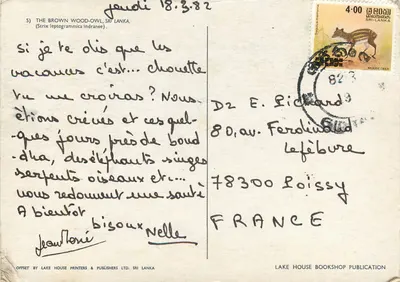 jeudi 18.3.82
5) THE BROWN WOOD-OWL, SRI LANKA.
(Strix leptogrammica indranee).
si je te dis que les
vacances c'est... chouette
tu me croiras? Nous
étions crevés et ces quel-
ques jours près de
des éléphants singes
serpents oiseaux etc...
nous redonnent une santé
A bientôt
bisoux
Nelle
4·00
SRI LANKA
82 3
19
Dz E. Pichard
80, av. Ferdinand
Lefébure
78300 Poissy
FRANCE
OFFSET BY LAKE HOUSE PRINTERS & PUBLISHERS LTD. SRI LANKA
LAKE HOUSE BOOKSHOP PUBLICATION